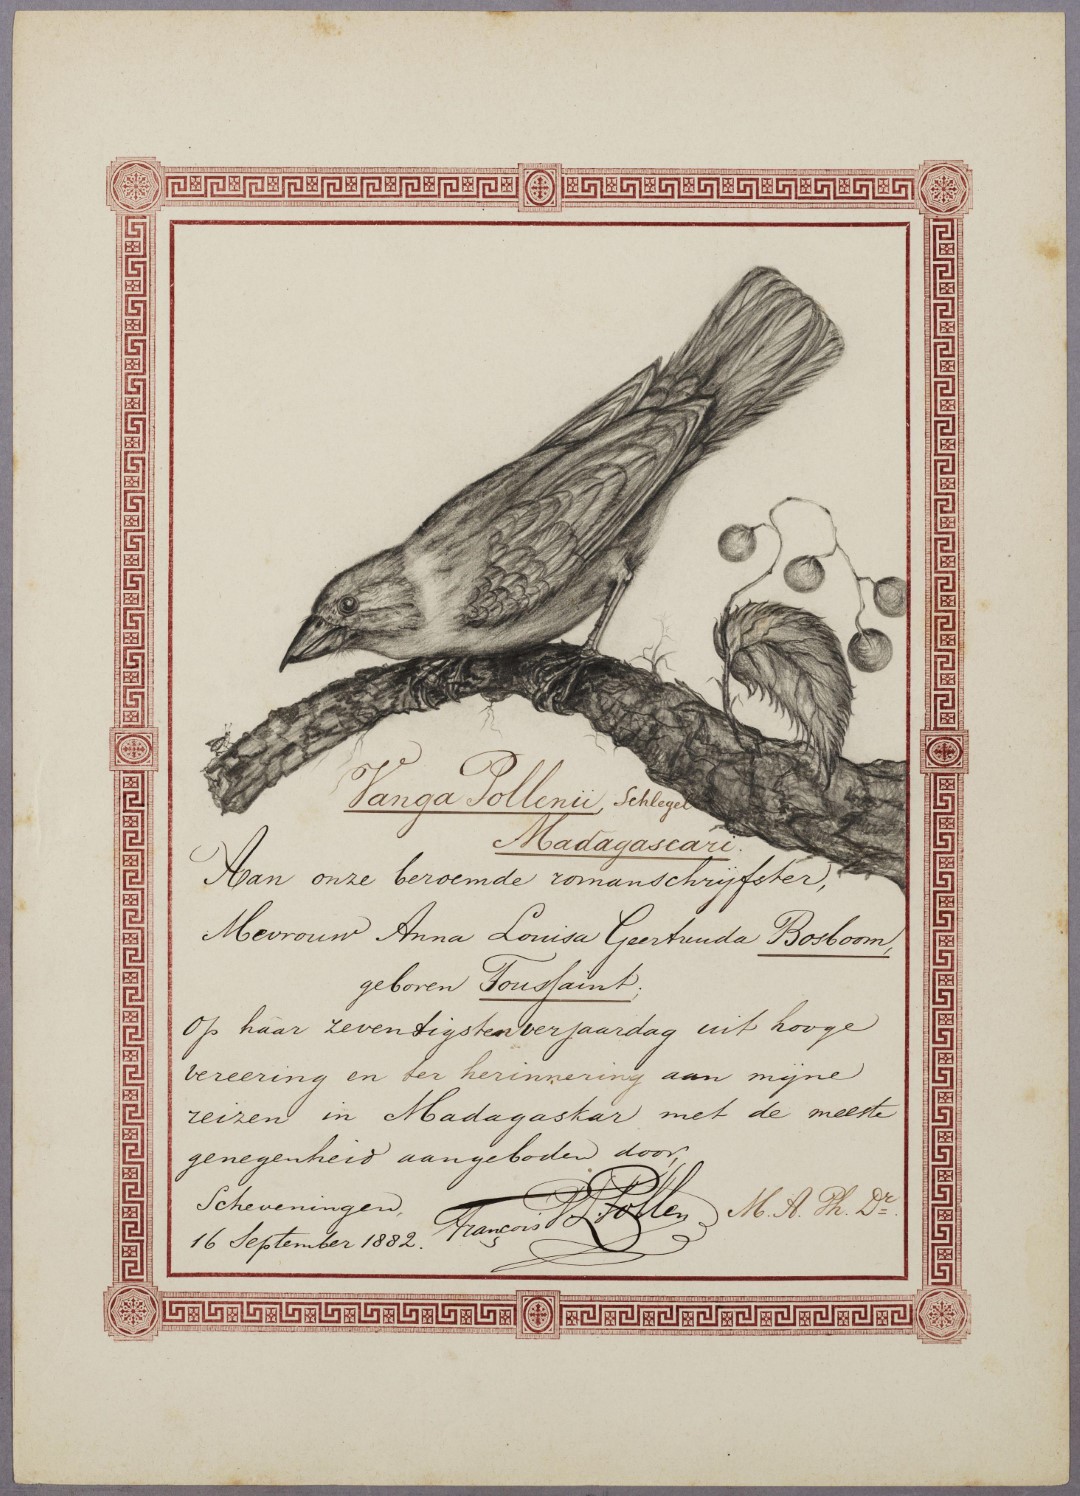 Vanga Pollenii, Schlegel
Madagascari.
Aan onze beroemde romanschrijfster,
Mevrouw Anna Louisa Geertruida Bosboom,
geboren Toussaint;
Op haar zeventigsten verjaardag uit hooge
vereering en ter herinnering aan mijne
reizen in Madagaskar met de meeste
genegenheid aangeboden door,
Scheveningen,
16 September 1882.
François P. L. Pollen M. A. Ph. Dr.